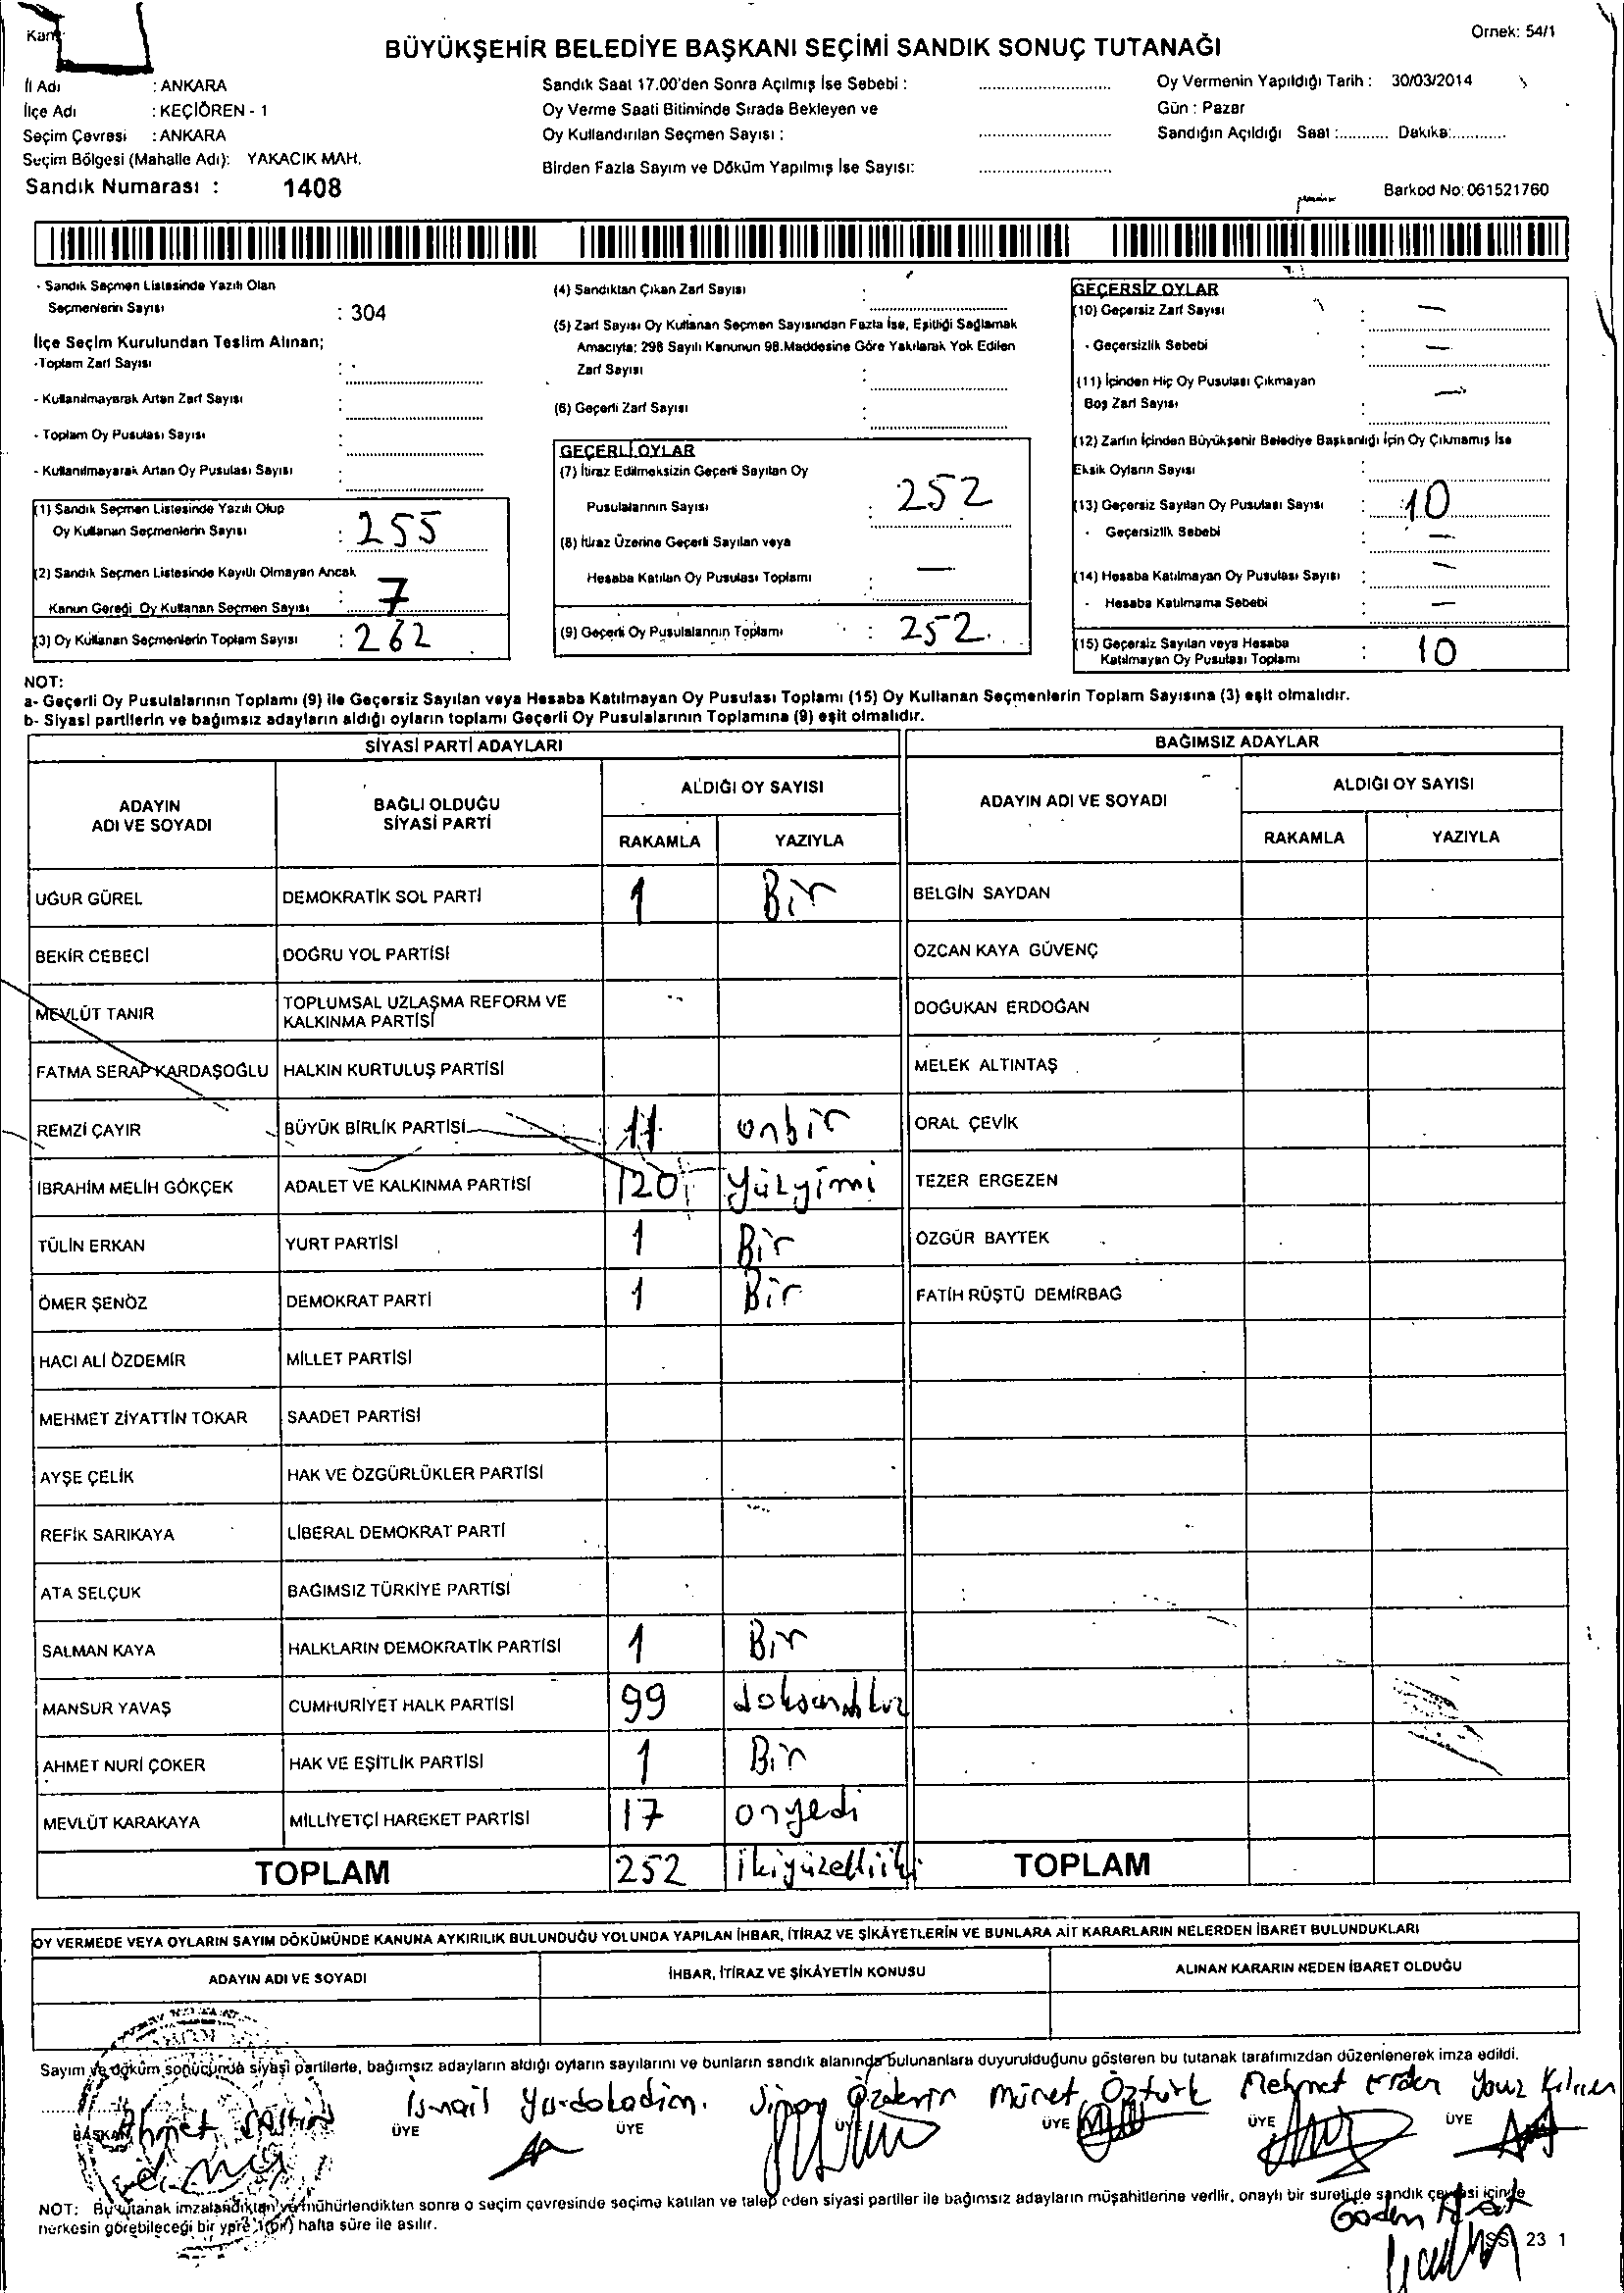 Örnek: 54/1
BÜYÜKŞEHİR BELEDİYE BAŞKANI SEÇİMİ SANDIK SONUÇ TUTANAĞI
İl Adı : ANKARA
İlçe Adı : KEÇİÖREN - 1
Seçim Çevresi : ANKARA
Seçim Bölgesi (Mahalle Adı): YAKACIK MAH.
Sandık Numarası : 1408
Sandık Saat 17.00'den Sonra Açılmış İse Sebebi :
Oy Verme Saati Bitiminde Sırada Bekleyen ve
Oy Kullandırılan Seçmen Sayısı :
Birden Fazla Sayım ve Döküm Yapılmış İse Sayısı:
Oy Vermenin Yapıldığı Tarih : 30/03/2014
Gün : Pazar
Sandığın Açıldığı Saat :........... Dakika:............
Barkod No: 061521760
- Sandık Seçmen Listesinde Yazılı Olan
Seçmenlerin Sayısı : 304
İlçe Seçim Kurulundan Teslim Alınan;
-Toplam Zarf Sayısı :
- Kullanılmayarak Artan Zarf Sayısı :
- Toplam Oy Pusulası Sayısı :
- Kullanılmayarak Artan Oy Pusulası Sayısı :
(1) Sandık Seçmen Listesinde Yazılı Olup
Oy Kullanan Seçmenlerin Sayısı : 255
(2) Sandık Seçmen Listesinde Kayıtlı Olmayan Ancak
Kanun Gereği Oy Kullanan Seçmen Sayısı : 7
(3) Oy Kullanan Seçmenlerin Toplam Sayısı : 262
(4) Sandıktan Çıkan Zarf Sayısı :
(5) Zarf Sayısı Oy Kullanan Seçmen Sayısından Fazla İse, Eşitliği Sağlamak
Amacıyla; 298 Sayılı Kanunun 98.Maddesine Göre Yakılarak Yok Edilen
Zarf Sayısı :
(6) Geçerli Zarf Sayısı :
GEÇERLİ OYLAR
(7) İtiraz Edilmeksizin Geçerli Sayılan Oy
Pusulalarının Sayısı : 252
(8) İtiraz Üzerine Geçerli Sayılan veya
Hesaba Katılan Oy Pusulası Toplamı : —
(9) Geçerli Oy Pusulalarının Toplamı : 252
GEÇERSİZ OYLAR
(10) Geçersiz Zarf Sayısı : —
- Geçersizlik Sebebi : —
(11) İçinden Hiç Oy Pusulası Çıkmayan
Boş Zarf Sayısı : —
(12) Zarfın İçinden Büyükşehir Belediye Başkanlığı İçin Oy Çıkmamış İse
Eksik Oyların Sayısı :
(13) Geçersiz Sayılan Oy Pusulası Sayısı : 10
- Geçersizlik Sebebi : —
(14) Hesaba Katılmayan Oy Pusulası Sayısı : —
- Hesaba Katılmama Sebebi : —
(15) Geçersiz Sayılan veya Hesaba
Katılmayan Oy Pusulası Toplamı : 10
NOT:
a- Geçerli Oy Pusulalarının Toplamı (9) ile Geçersiz Sayılan veya Hesaba Katılmayan Oy Pusulası Toplamı (15) Oy Kullanan Seçmenlerin Toplam Sayısına (3) eşit olmalıdır.
b- Siyasi partilerin ve bağımsız adayların aldığı oyların toplamı Geçerli Oy Pusulalarının Toplamına (9) eşit olmalıdır.
SİYASİ PARTİ ADAYLARI BAĞIMSIZ ADAYLAR
ADAYIN ADI VE SOYADI BAĞLI OLDUĞU SİYASİ PARTİ ALDIĞI OY SAYISI ADAYIN ADI VE SOYADI ALDIĞI OY SAYISI
RAKAMLA YAZIYLA RAKAMLA YAZIYLA
UĞUR GÜREL DEMOKRATİK SOL PARTİ 1 Bir BELGİN SAYDAN
BEKİR CEBECİ DOĞRU YOL PARTİSİ ÖZCAN KAYA GÜVENÇ
MEVLÜT TANIR TOPLUMSAL UZLAŞMA REFORM VE KALKINMA PARTİSİ DOĞUKAN ERDOĞAN
FATMA SERAP KARDAŞOĞLU HALKIN KURTULUŞ PARTİSİ MELEK ALTINTAŞ
REMZİ ÇAYIR BÜYÜK BİRLİK PARTİSİ 11 onbir ORAL ÇEVİK
İBRAHİM MELİH GÖKÇEK ADALET VE KALKINMA PARTİSİ 120 yüzyimi TEZER ERGEZEN
TÜLİN ERKAN YURT PARTİSİ 1 Bir ÖZGÜR BAYTEK
ÖMER ŞENÖZ DEMOKRAT PARTİ 1 Bir FATİH RÜŞTÜ DEMİRBAĞ
HACI ALİ ÖZDEMİR MİLLET PARTİSİ
MEHMET ZİYATTİN TOKAR SAADET PARTİSİ
AYŞE ÇELİK HAK VE ÖZGÜRLÜKLER PARTİSİ
REFİK SARIKAYA LİBERAL DEMOKRAT PARTİ
ATA SELÇUK BAĞIMSIZ TÜRKİYE PARTİSİ
SALMAN KAYA HALKLARIN DEMOKRATİK PARTİSİ 1 Bir
MANSUR YAVAŞ CUMHURİYET HALK PARTİSİ 99
AHMET NURİ ÇOKER HAK VE EŞİTLİK PARTİSİ 1 Bir
MEVLÜT KARAKAYA MİLLİYETÇİ HAREKET PARTİSİ 17 onyedi
TOPLAM 252 ikiyüzelliiki TOPLAM
OY VERMEDE VEYA OYLARIN SAYIM DÖKÜMÜNDE KANUNA AYKIRILIK BULUNDUĞU YOLUNDA YAPILAN İHBAR, İTİRAZ VE ŞİKÂYETLERİN VE BUNLARA AİT KARARLARIN NELERDEN İBARET BULUNDUKLARI
ADAYIN ADI VE SOYADI İHBAR, İTİRAZ VE ŞİKÂYETİN KONUSU ALINAN KARARIN NEDEN İBARET OLDUĞU
Sayım ve döküm sonucunda siyasi partilerle, bağımsız adayların aldığı oyların sayılarını ve bunların sandık alanında bulunanlara duyurulduğunu gösteren bu tutanak tarafımızdan düzenlenerek imza edildi.
Ahmet İsmail Özdemir Mürvet Öztürk Mehmet Erden Yavuz
BAŞKAN ÜYE ÜYE ÜYE ÜYE ÜYE ÜYE
NOT: Bu tutanak imzalandıktan ve mühürlendikten sonra o seçim çevresinde seçime katılan ve talep eden siyasi partiler ile bağımsız adayların müşahitlerine verilir, onaylı bir sureti de sandık çevresi içinde
herkesin görebileceği bir yere 1(bir) hafta süre ile asılır.
23 1